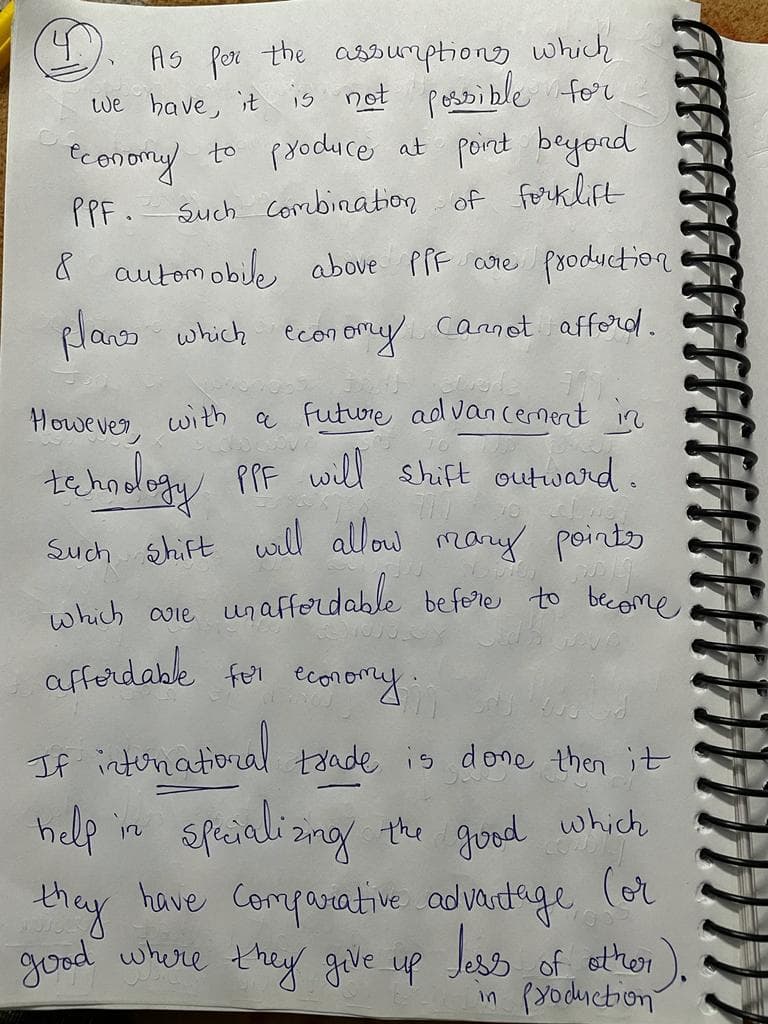 4. As per the assumptions which
we have, it is not possible for
economy to produce at point beyond
PPF. Such combination of forklift
& automobile above PPF are production
plans which economy cannot afford.
However, with a future advancement in
technology PPF will shift outward.
Such shift will allow many points
which are unaffordable before to become
affordable for economy.
If international trade is done then it
help in specializing the good which
they have comparative advantage (or
good where they give up less of other).
in production